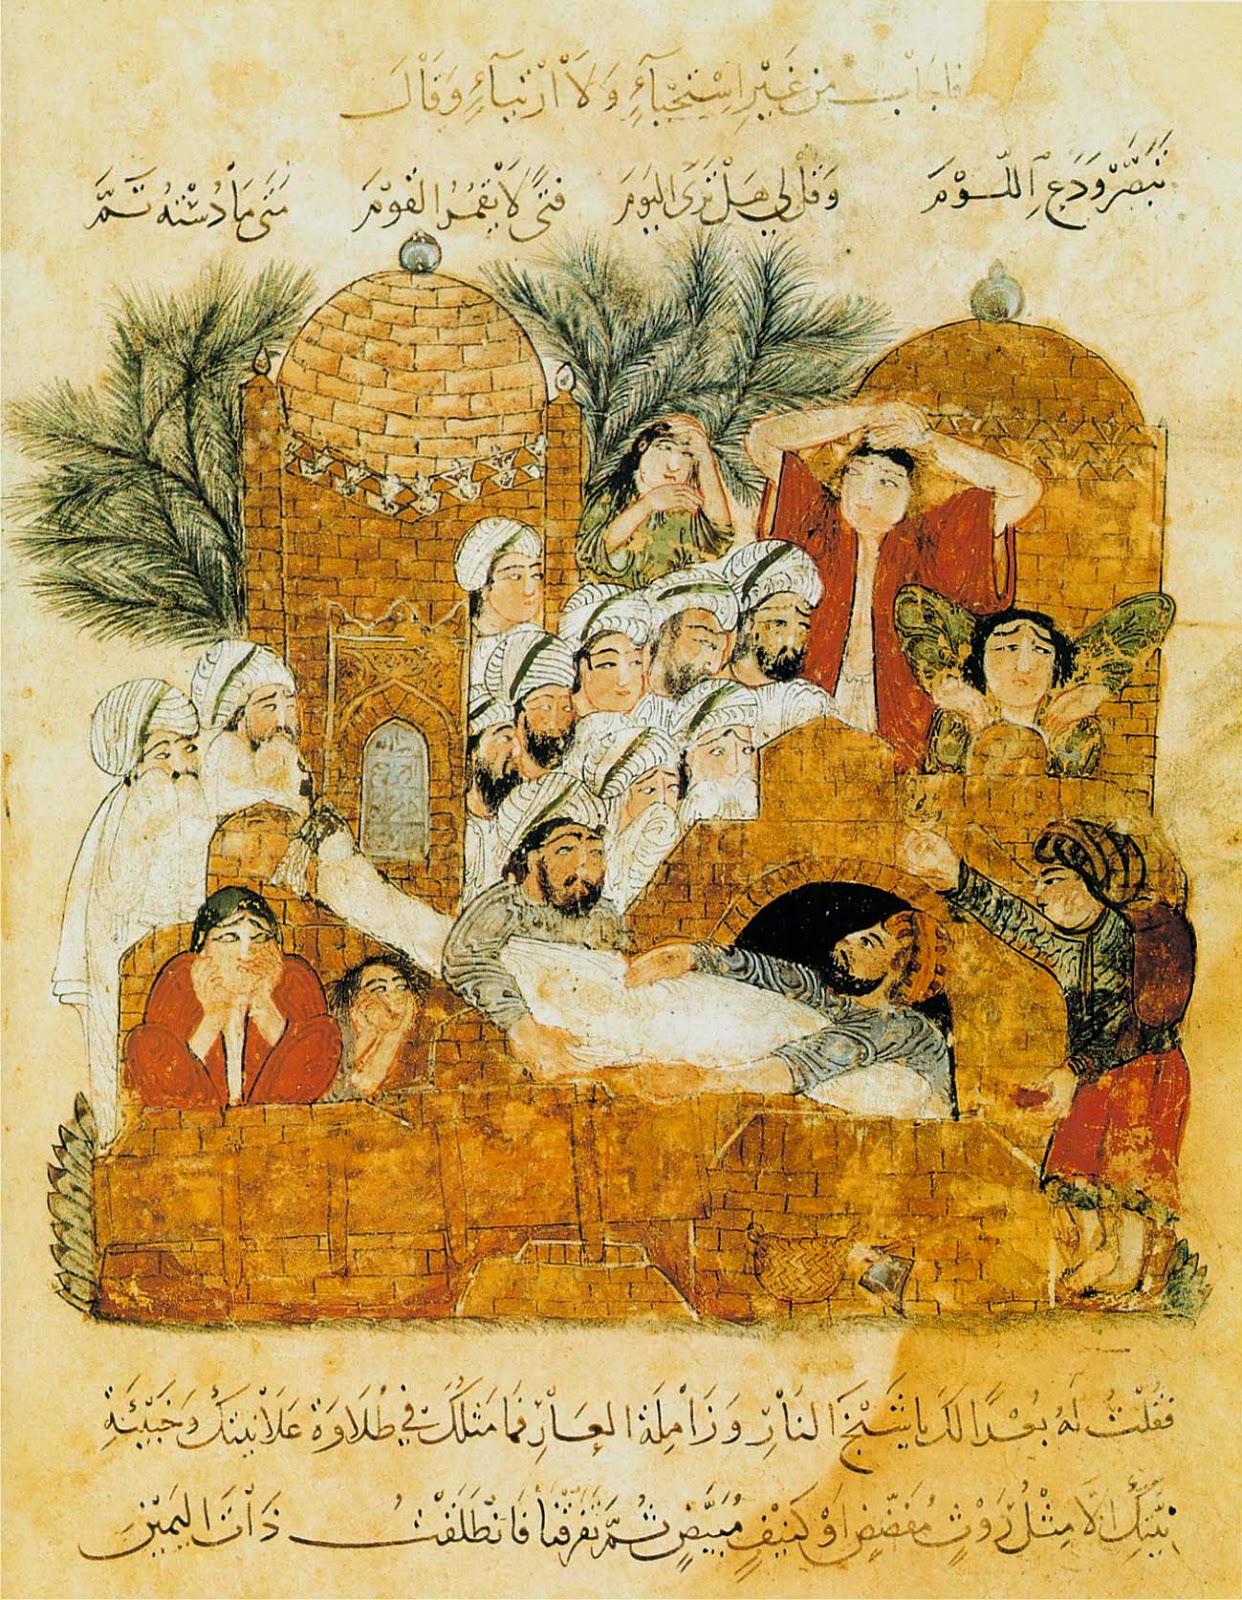 فاجاب من غير استحياء ولا ارتياء وقال
تبصر ودع اللوم وقل لي هل ترى اليوم فتى لا يقمر القوم متى ما دسته تم
فقلت له بعدا لك يا شيخ النار وزاملة العار فما مثلك في طلاوة علانيتك وخبيئة
نيتك الا مثل روث مفضض او كنيف مبيض ثم تفرقنا فانطلقت ذات اليمين